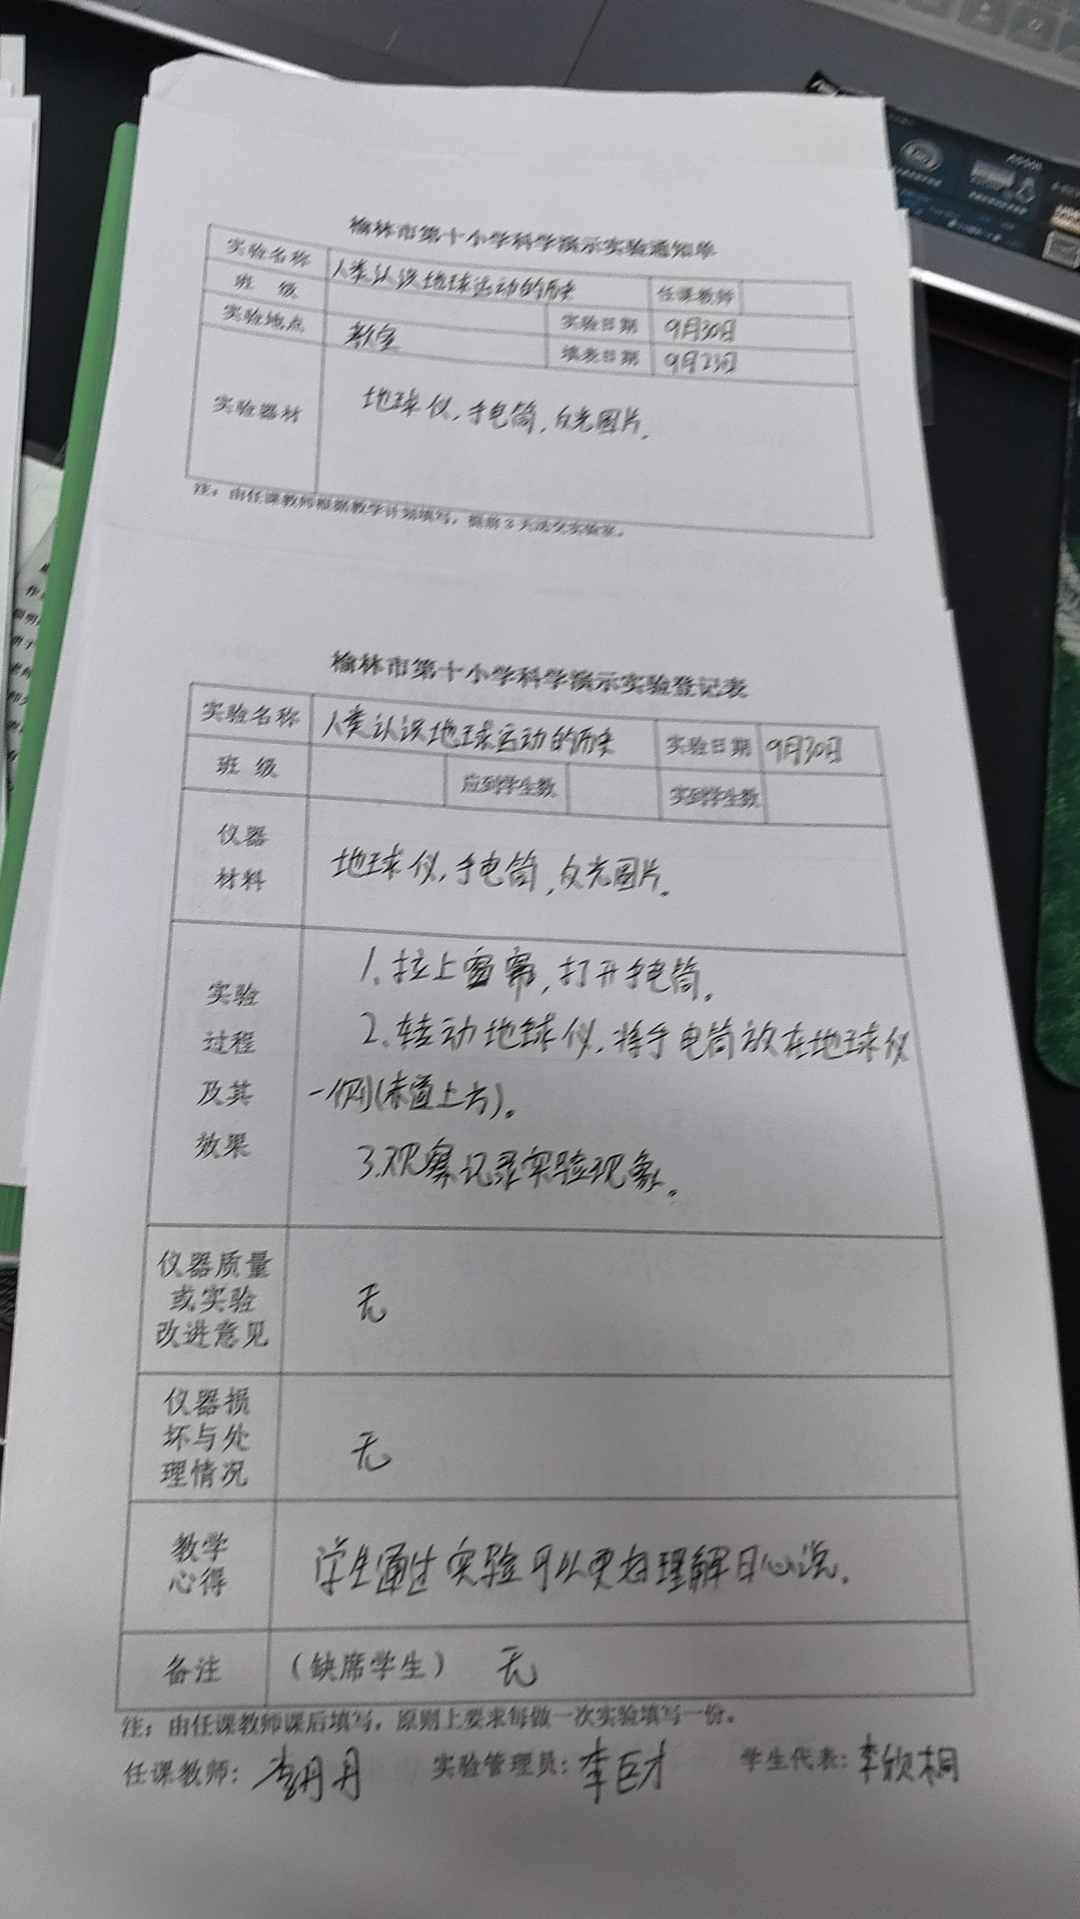 榆林市第十小学科学演示实验通知单
实验名称 人类认识地球运动的历史 任课教师
班 级 实验日期 9月30日
实验地点 教室 填表日期 9月23日
实验器材 地球仪,手电筒,反光图片。
注:由任课教师根据教学计划填写,提前3天送交实验室。
榆林市第十小学科学演示实验登记表
实验名称 人类认识地球运动的历史 实验日期 9月30日
班 级 应到学生数 实到学生数
仪器
材料
地球仪,手电筒,反光图片。
实验
过程
及其
效果
1.拉上窗帘,打开手电筒。
2.转动地球仪,将手电筒放在地球仪
一侧(赤道上方)。
3.观察记录实验现象。
仪器质量
或实验
改进意见
无
仪器损
坏与处
理情况
无
教学
心得
学生通过实验可以更好理解日心说.
备注 (缺席学生) 无
注:由任课教师课后填写,原则上要求每做一次实验填写一份。
任课教师: 月月 实验管理员:李巨才 学生代表:李欣桐